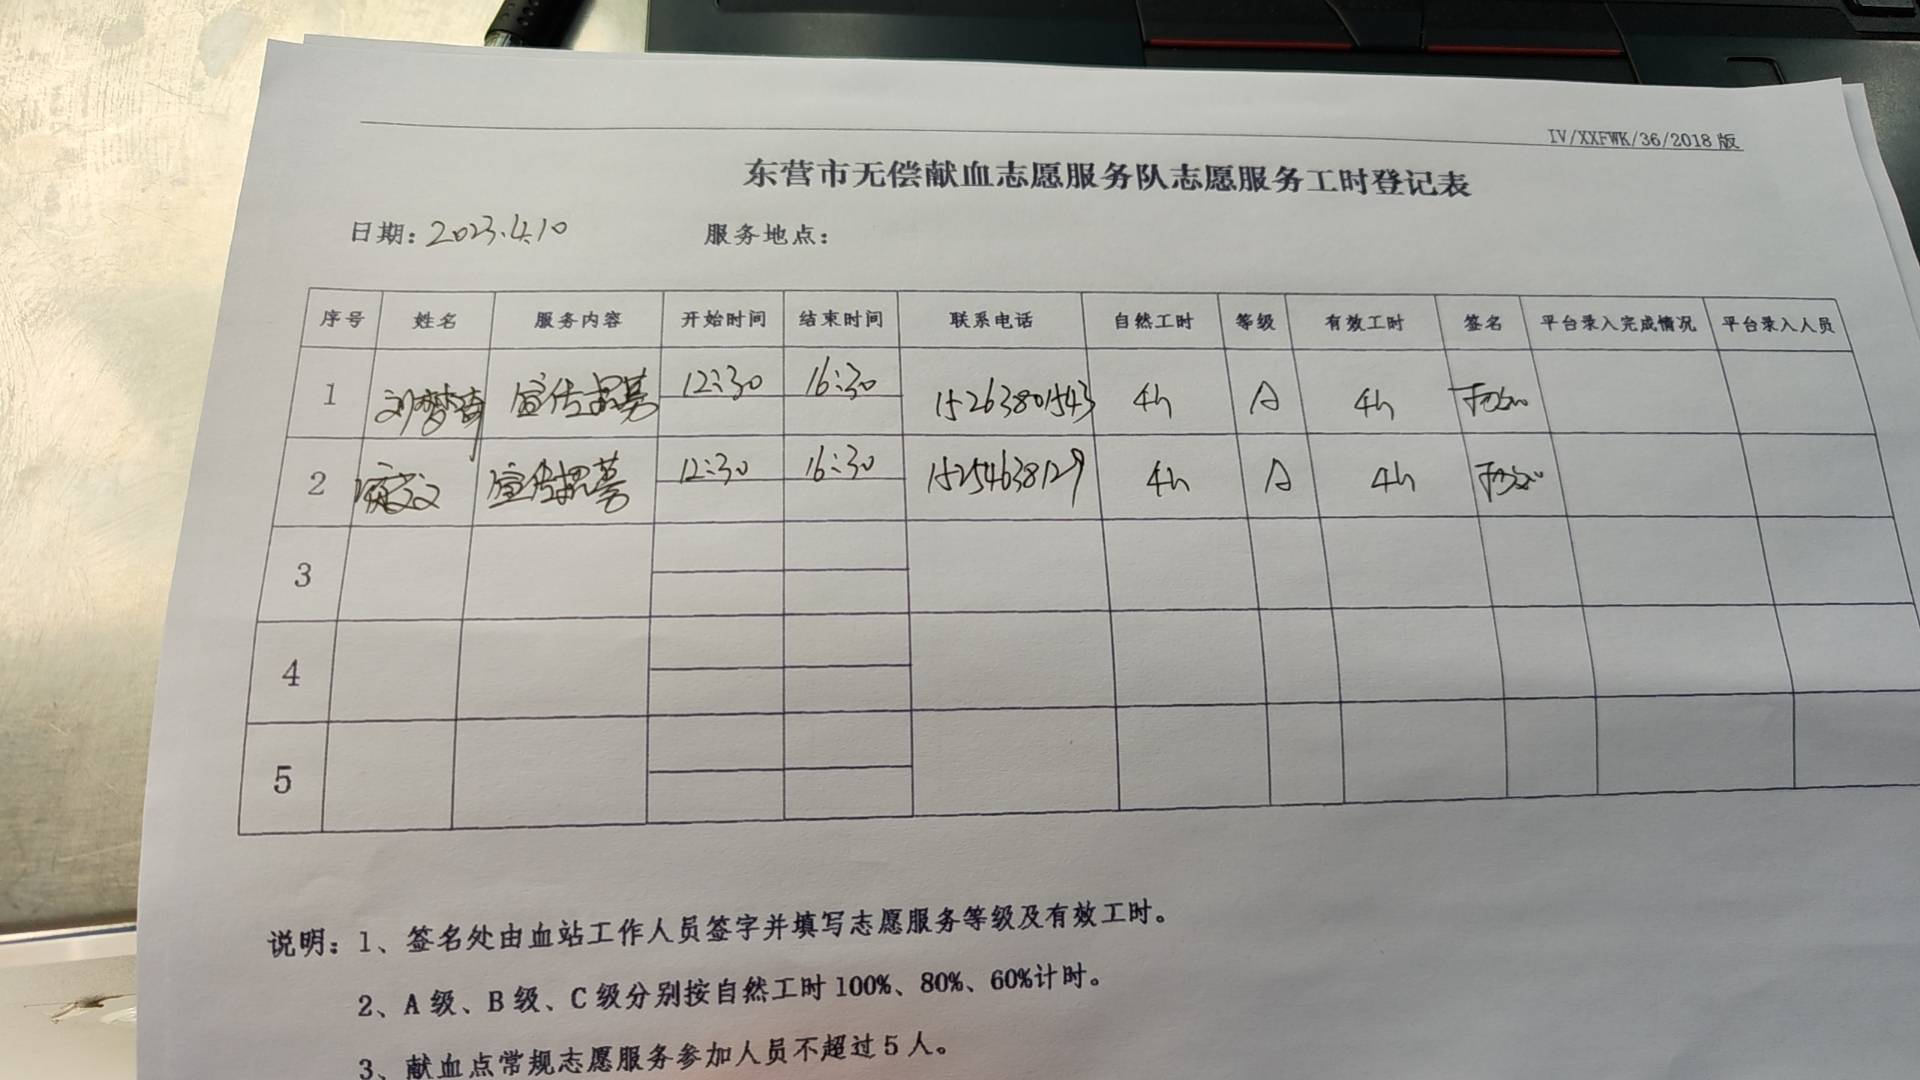 IV/XXFWK/36/2018版
东营市无偿献血志愿服务队志愿服务工时登记表
日期：2023.4.10 服务地点：
序号 姓名 服务内容 开始时间 结束时间 联系电话 自然工时 等级 有效工时 签名 平台录入完成情况 平台录入人员
1 刘梦琦 宣传招募 12:30 16:30 15263801543 4h A 4h
2 宣传招募 12:30 16:30 15254638129 4h A 4h
3
4
5
说明：1、签名处由血站工作人员签字并填写志愿服务等级及有效工时。
2、A级、B级、C级分别按自然工时100%、80%、60%计时。
3、献血点常规志愿服务参加人员不超过5人。